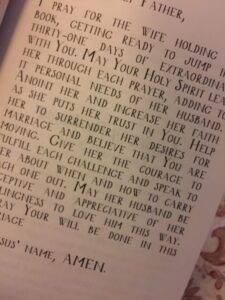 Father,
I pray for the wife holding
book, getting ready to jump in
thirty-one days of extraordinar
with You. May Your Holy Spirit lea
her through each prayer, adding to
it personal needs of her husband.
Anoint her and increase her faith
as she puts her trust in You. Help
her to surrender her desires for
marriage and believe that You are
moving. Give her the courage to
fulfill each challenge and speak to
her about when and how to carry
each one out. May her husband be
ceptive and appreciative of her
llingness to love him this way.
ray Your will be done in this
riage
sus' name, Amen.